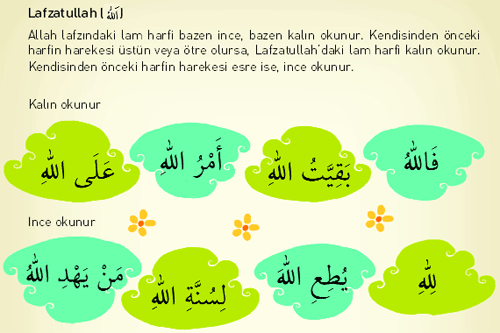 Lafzatullah (اَللّٰهُ)
Allah lafzındaki lam harfi bazen ince, bazen kalın okunur. Kendisinden önceki
harfin harekesi üstün veya ötre olursa, Lafzatullah'daki lam harfi kalın okunur.
Kendisinden önceki harfin harekesi esre ise, ince okunur.
Kalın okunur
فَاللّٰهُ بَقِيَّتُ اللّٰهِ أَمْرُ اللّٰهِ عَلَى اللّٰهِ
Ince okunur
لِلّٰهِ يُطِعِ اللّٰهَ لِسُنَّةِ اللّٰهِ مَنْ يَهْدِ اللّٰهُ